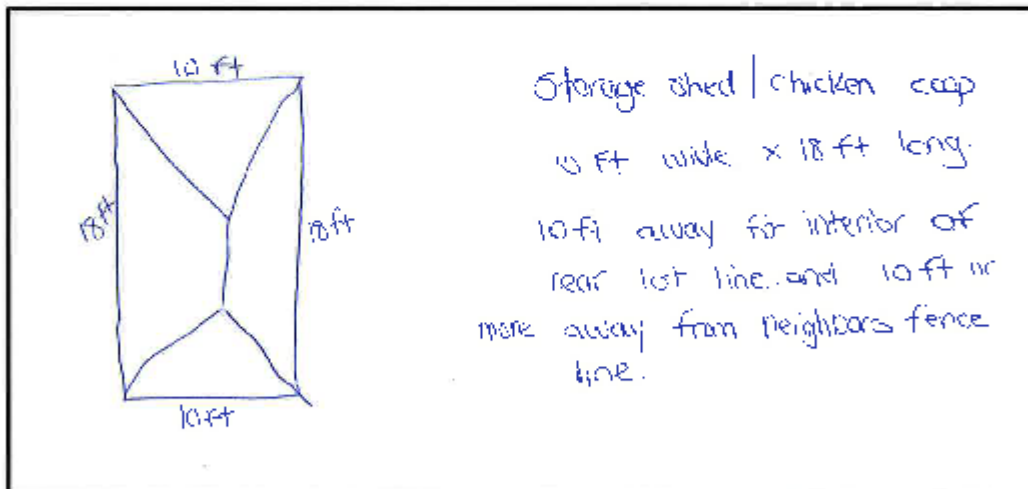 10 ft
18ft
18ft
10ft
Storage shed | chicken coop
10 ft wide x 18 ft long.
10ft away for interior of
rear lot line and 10 ft or
more away from neighbors fence
line.